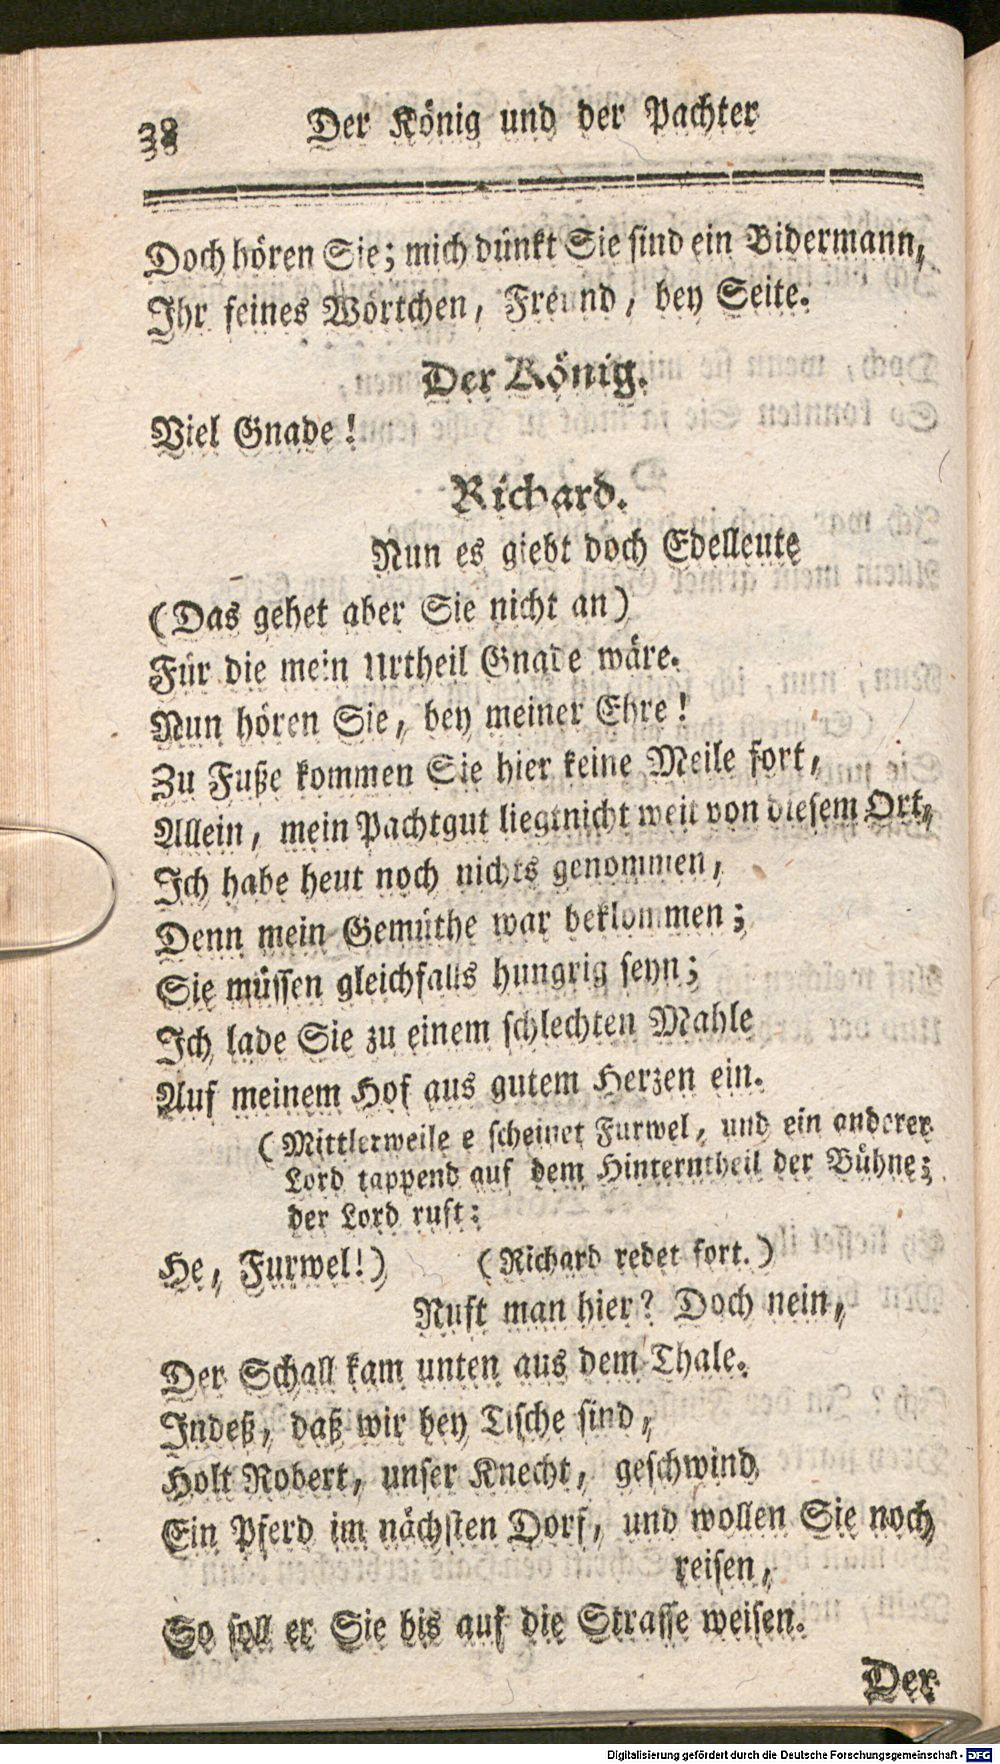 38 Der König und der Pachter
Doch hören Sie; mich dünkt Sie sind ein Bidermann,
Ihr feines Wörtchen, Freund, bey Seite.
Der König.
Viel Gnade!
Richard.
Nun es giebt doch Edelleute
(Das gehet aber Sie nicht an)
Für die mein Urtheil Gnade wäre.
Nun hören Sie, bey meiner Ehre!
Zu Fuße kommen Sie hier keine Meile fort,
Allein, mein Pachtgut liegt nicht weit von diesem Ort,
Ich habe heut noch nichts genommen,
Denn mein Gemüthe war beklommen;
Sie müssen gleichfalls hungrig seyn;
Ich lade Sie zu einem schlechten Mahle
Auf meinem Hof aus gutem Herzen ein.
(Mittlerweile e scheinet Furwel, und ein anderer
Lord tappend auf dem Hinterntheil der Bühne;
der Lord ruft:
He, Furwel!) (Richard redet fort.)
Ruft man hier? Doch nein,
Der Schall kam unten aus dem Thale.
Indeß, daß wir bey Tische sind,
Holt Robert, unser Knecht, geschwind
Ein Pferd im nächsten Dorf, und wollen Sie noch
reisen,
So soll er Sie bis auf die Strasse weisen.
Der
Digitalisierung gefördert durch die Deutsche Forschungsgemeinschaft - DFG